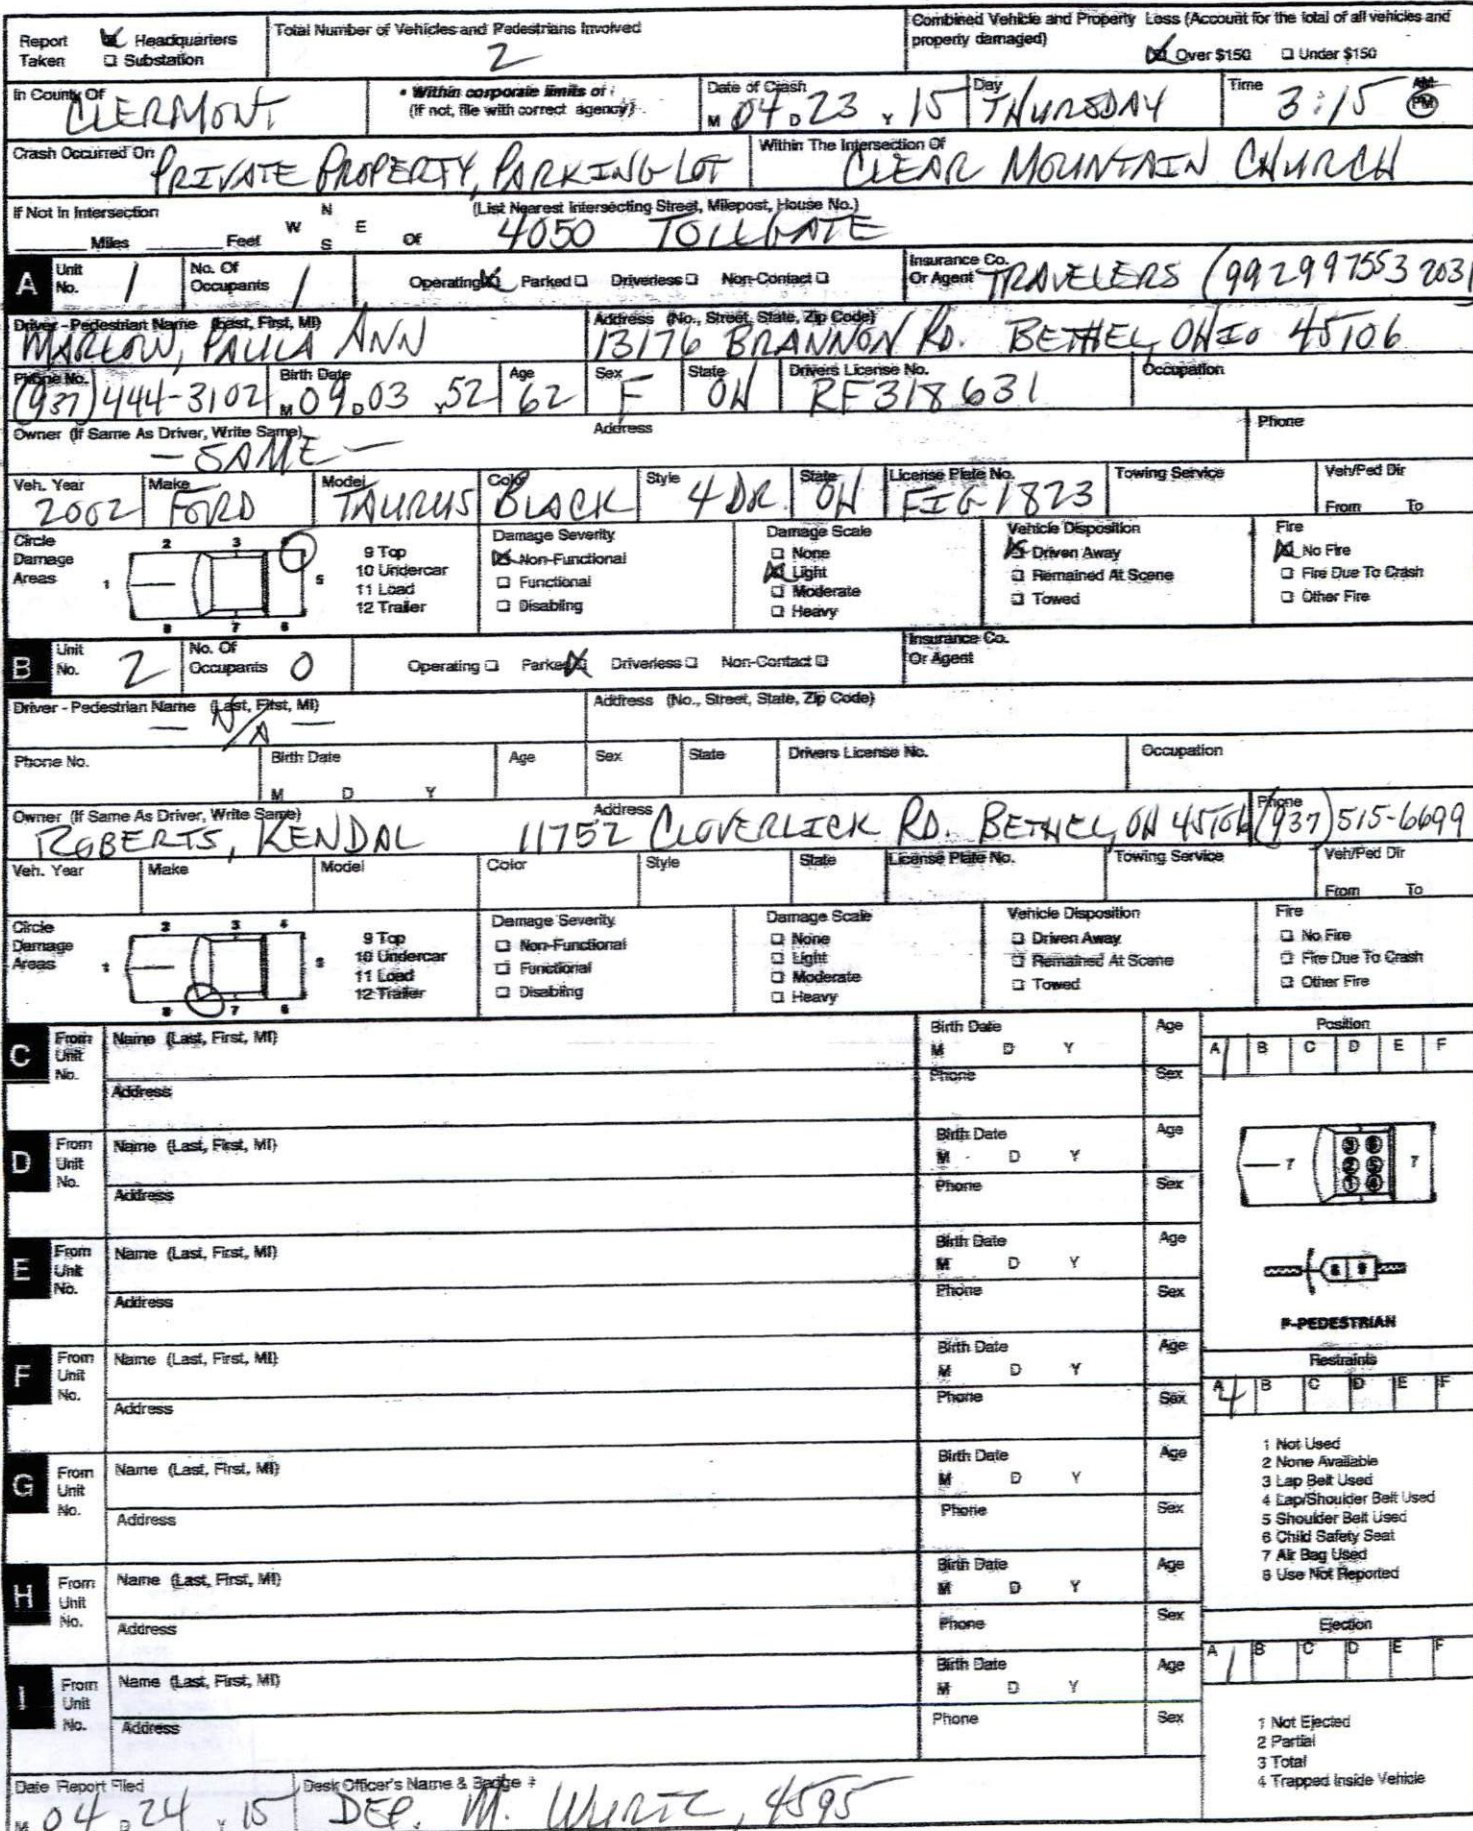 Report Taken ☒ Headquarters ☐ Substation
Total Number of Vehicles and Pedestrians Involved 2
Combined Vehicle and Property Loss (Account for the total of all vehicles and property damaged) ☒ Over $150 ☐ Under $150
In County Of CLERMONT
• Within corporate limits of : (If not, file with correct agency)
Date of Crash M 04 D 23 Y 15
Day THURSDAY
Time 3:15 AM PM
Crash Occurred On PRIVATE PROPERTY, PARKING LOT
Within The Intersection Of CLEAR MOUNTAIN CHURCH
If Not In Intersection ____ Miles ____ Feet N W E S Of
(List Nearest Intersecting Street, Milepost, House No.) 4050 TOLLGATE
A Unit No. 1 No. Of Occupants 1 Operating ☒ Parked ☐ Driverless ☐ Non-Contact ☐
Insurance Co. Or Agent TRAVELERS (992997553 2031
Driver - Pedestrian Name (Last, First, MI) MARLOW, PAULA ANN
Address (No., Street, State, Zip Code) 13176 BRANNON RD. BETHEL, OHIO 45106
Phone No. (937) 444-3102 Birth Date M 09 D 03 Y 52 Age 62 Sex F State OH Drivers License No. RF318631 Occupation
Owner (If Same As Driver, Write Same) - SAME - Address Phone
Veh. Year 2002 Make FORD Model TAURUS Color BLACK Style 4 DR. State OH License Plate No. FIG 1823 Towing Service Veh/Ped Dir From To
Circle Damage Areas 1 2 3 5 6 7 8
9 Top
10 Undercar
11 Load
12 Trailer
Damage Severity ☒ Non-Functional ☐ Functional ☐ Disabling
Damage Scale ☐ None ☒ Light ☐ Moderate ☐ Heavy
Vehicle Disposition ☒ Driven Away ☐ Remained At Scene ☐ Towed
Fire ☒ No Fire ☐ Fire Due To Crash ☐ Other Fire
B Unit No. 2 No. Of Occupants 0 Operating ☐ Parked ☒ Driverless ☐ Non-Contact ☐
Insurance Co. Or Agent
Driver - Pedestrian Name (Last, First, MI) - N/A -
Address (No., Street, State, Zip Code)
Phone No. Birth Date M D Y Age Sex State Drivers License No. Occupation
Owner (If Same As Driver, Write Same) ROBERTS, KENDAL Address 11752 CLOVERLICK RD. BETHEL, OH 45106 Phone (937) 515-6699
Veh. Year Make Model Color Style State License Plate No. Towing Service Veh/Ped Dir From To
Circle Damage Areas 1 2 3 4 5 6 7 8
9 Top
10 Undercar
11 Load
12 Trailer
Damage Severity ☐ Non-Functional ☐ Functional ☐ Disabling
Damage Scale ☐ None ☐ Light ☐ Moderate ☐ Heavy
Vehicle Disposition ☐ Driven Away ☐ Remained At Scene ☐ Towed
Fire ☐ No Fire ☐ Fire Due To Crash ☐ Other Fire
C From Unit No. Name (Last, First, MI) Birth Date M D Y Age
Address Phone Sex
Position
A 1 B C D E F
D From Unit No. Name (Last, First, MI) Birth Date M D Y Age
Address Phone Sex
7 3 6 2 5 1 4 7
E From Unit No. Name (Last, First, MI) Birth Date M D Y Age
Address Phone Sex
8 9
P-PEDESTRIAN
F From Unit No. Name (Last, First, MI) Birth Date M D Y Age
Address Phone Sex
Restraints
A 4 B C D E F
G From Unit No. Name (Last, First, MI) Birth Date M D Y Age
Address Phone Sex
1 Not Used
2 None Available
3 Lap Belt Used
4 Lap/Shoulder Belt Used
5 Shoulder Belt Used
6 Child Safety Seat
7 Air Bag Used
8 Use Not Reported
H From Unit No. Name (Last, First, MI) Birth Date M D Y Age
Address Phone Sex
Ejection
A 1 B C D E F
I From Unit No. Name (Last, First, MI) Birth Date M D Y Age
Address Phone Sex
1 Not Ejected
2 Partial
3 Total
4 Trapped Inside Vehicle
Date Report Filed M 04 D 24 Y 15
Desk Officer's Name & Badge # DEP. M. WURTZ, 4595